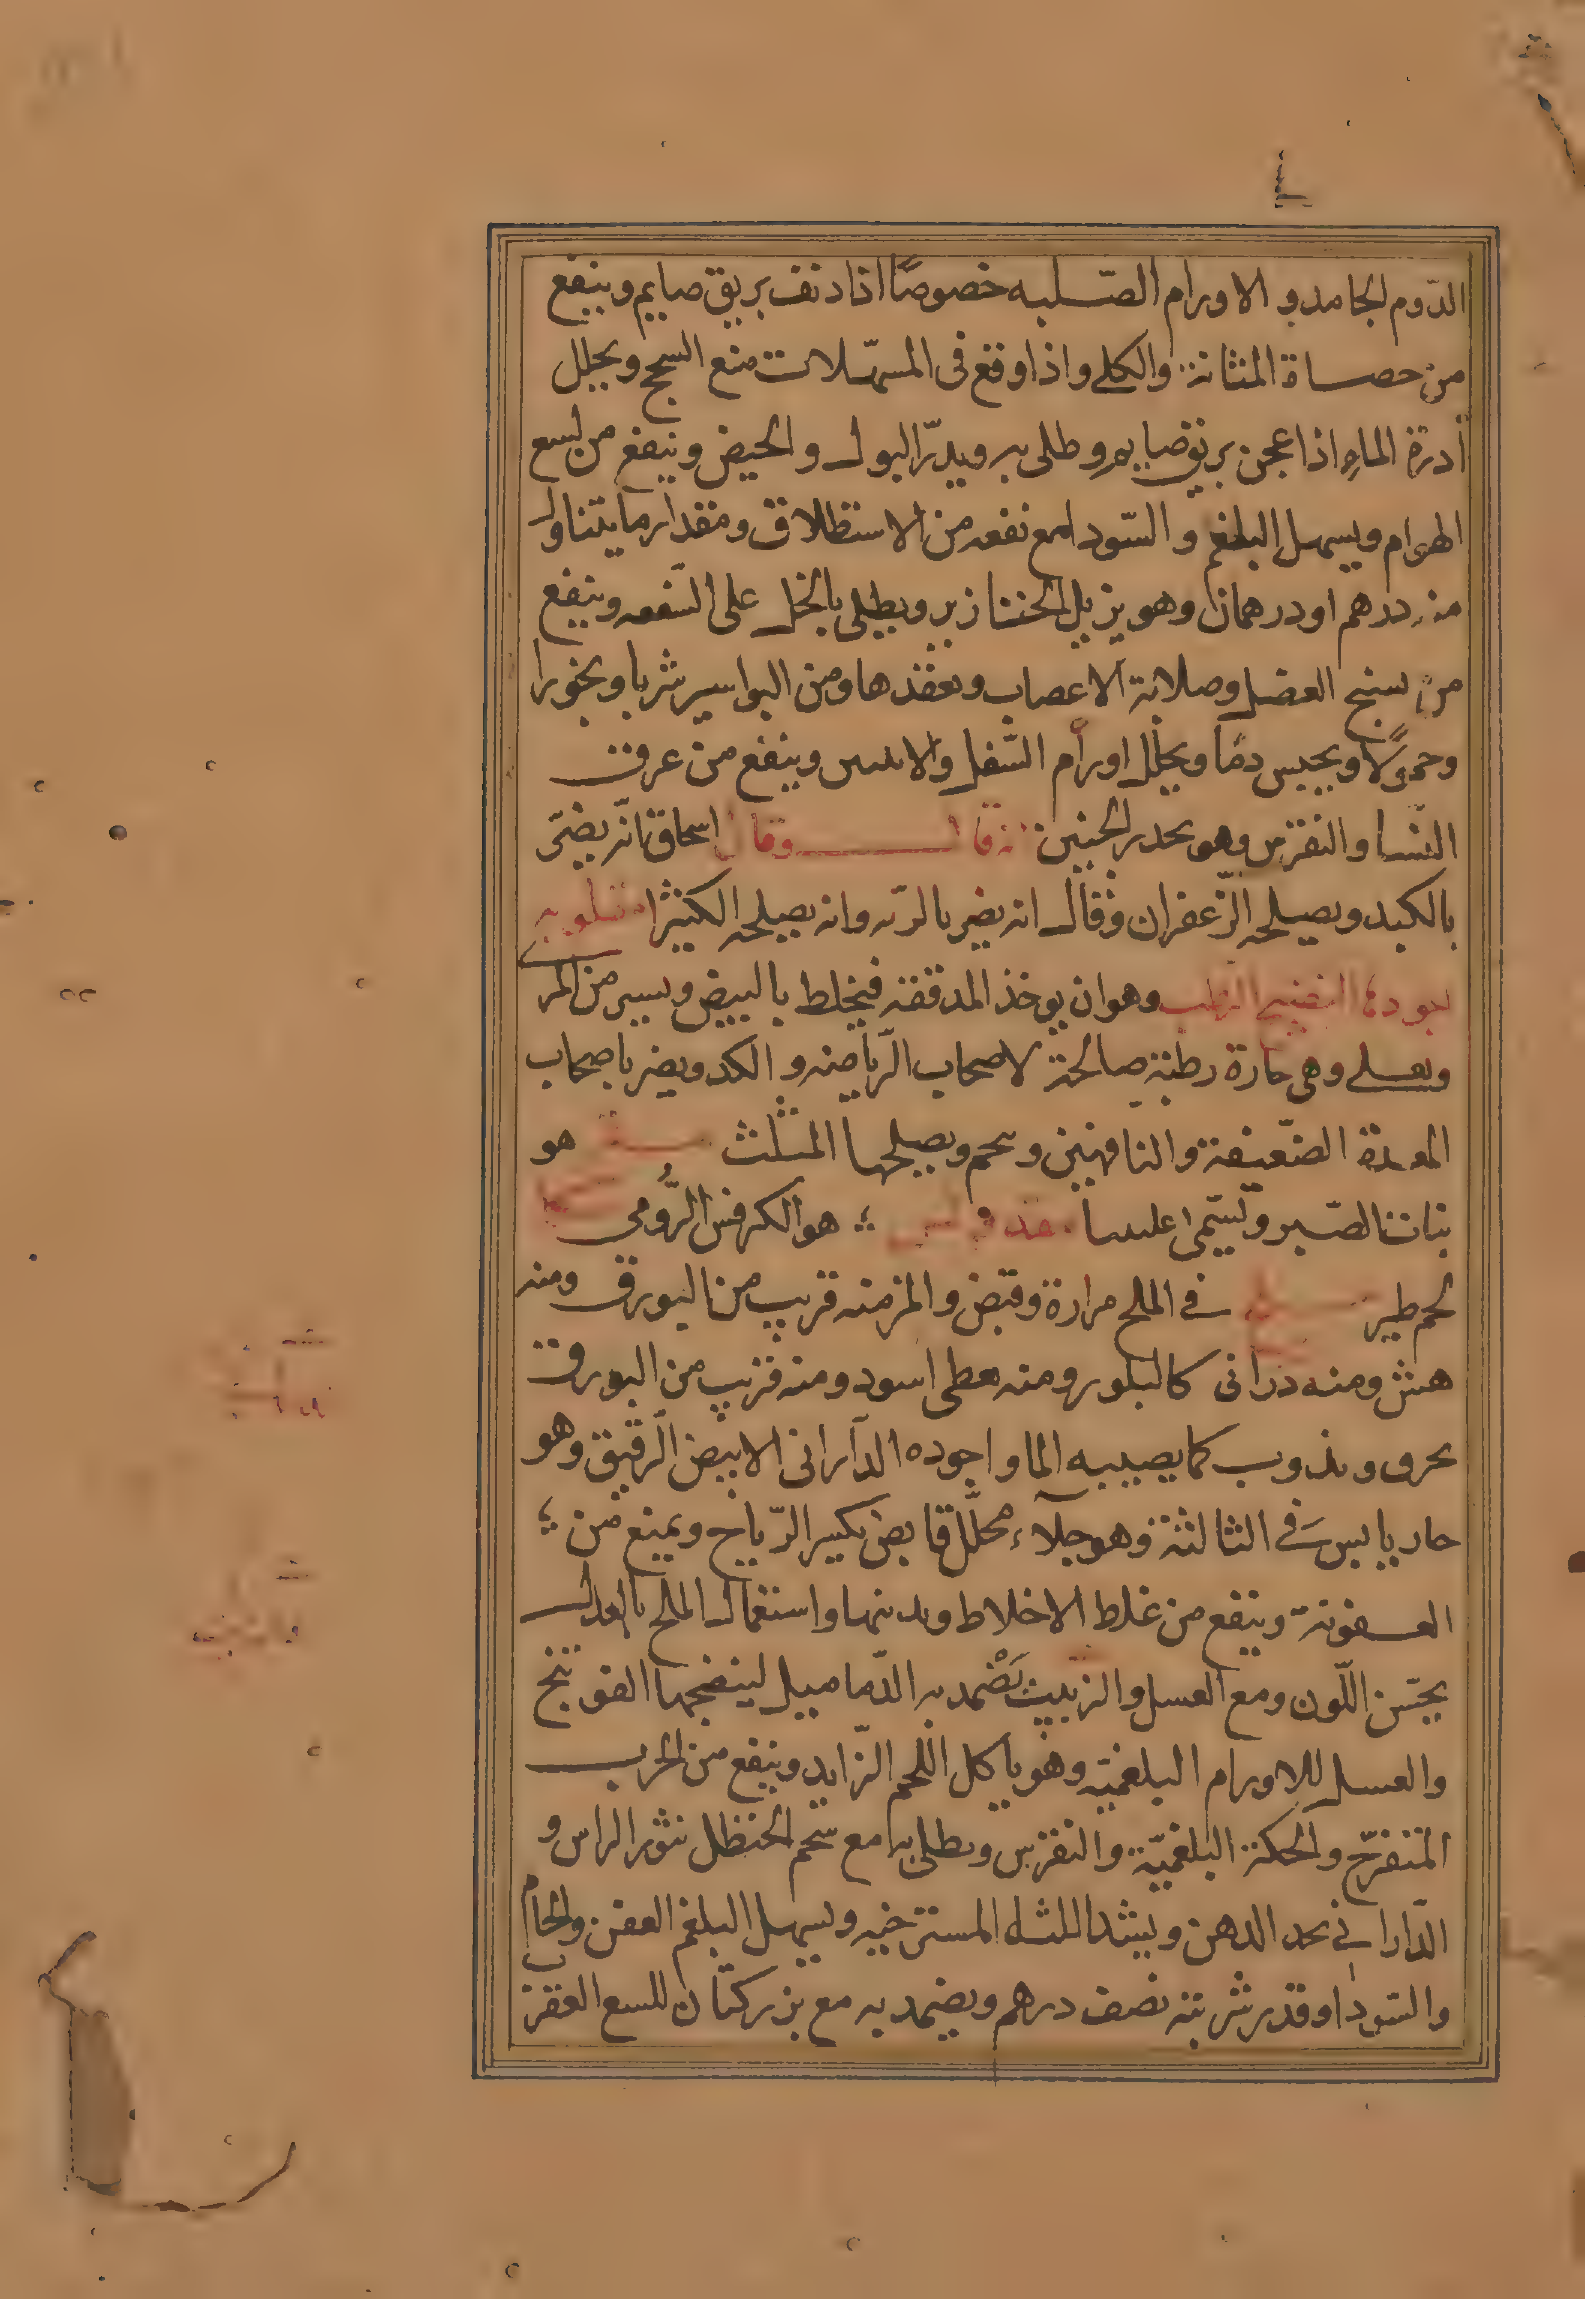 الدّوم الجامد و الاورام الصّلبه خصوصًا اذا دنف بريق صايم وينفع
من حصاة المثانة والكلى واذا وقع فى المسهّلات منع السحج ويحلل
أدرة الماء اذا عجن بريق صايم وطلى به ويدرّ البول والحيض وينفع من لسع
الهوام ويسهل البلغم والسّودا مع نفعه من الاستطلاق ومقدار ما يتناول
منه درهم او درهمان وهو يزيل الخنازير ويطلى بالخل على السّعفه وينفع
من سنج العضل وصلابة الاعصاب وتعقدها ومن البواسير شربا وبخورا
وحمولًا ويحبس دمًا ويحلل اورام السّفل والانثيين وينفع من عرق
النّسا والنقرس وهو يحدر الجنين وقال اسحاق انّه يضرّ
بالكبد ويصلحه الزّعفران وقال انه يضر بالريه وانه يصلحه الكثيرا
وهو ان يوخذ المدققة فيخلط بالبيض ويسير من المر
ويعلى وهى حارة رطبة صالحة لاصحاب الرّياضه و الكد ويضر باصحاب
المعدة الضّعيفة والناقهين ويصلحها المثلث هو
بنات الصّبر ويسّمى هو الكرفس الرّومى
لحم طير فى الملح مرارة وقبض والمر منه قريب من البورق ومنه
هش ومنه درانى كالبلور ومنه اسود ومنه قريب من البورق
يحرق ويذوب كما يصيبه الما واجوده الدّارانى الابيض الرّقيق وهو
حار يابس فى الثالثة وهو جلاء محلّل قابض يكسر الرّياح ويمنع من
العفونة وينفع من غلظ الاخلاط ويذيبها واستعمال الملح بالعدل
يحسّن اللّون ومع العسل والزبيب تضمد به الدّماميل لينضجها الفوتنج
والعسل للاورام البلغميّه وهو ياكل اللحم الزّايد وينفع من الجرب
المتقرّح والحكة البلغميّة والنقرس ويطلى به مع شحم الحنظل بثور الراس و
الدّارانى يحد الذهن ويشد اللثه المسترخيه ويسهل البلغم العفن والخام
والسّودا وقدر شربته نصف درهم ويضمد به مع بزر كتّان للسع العقرب